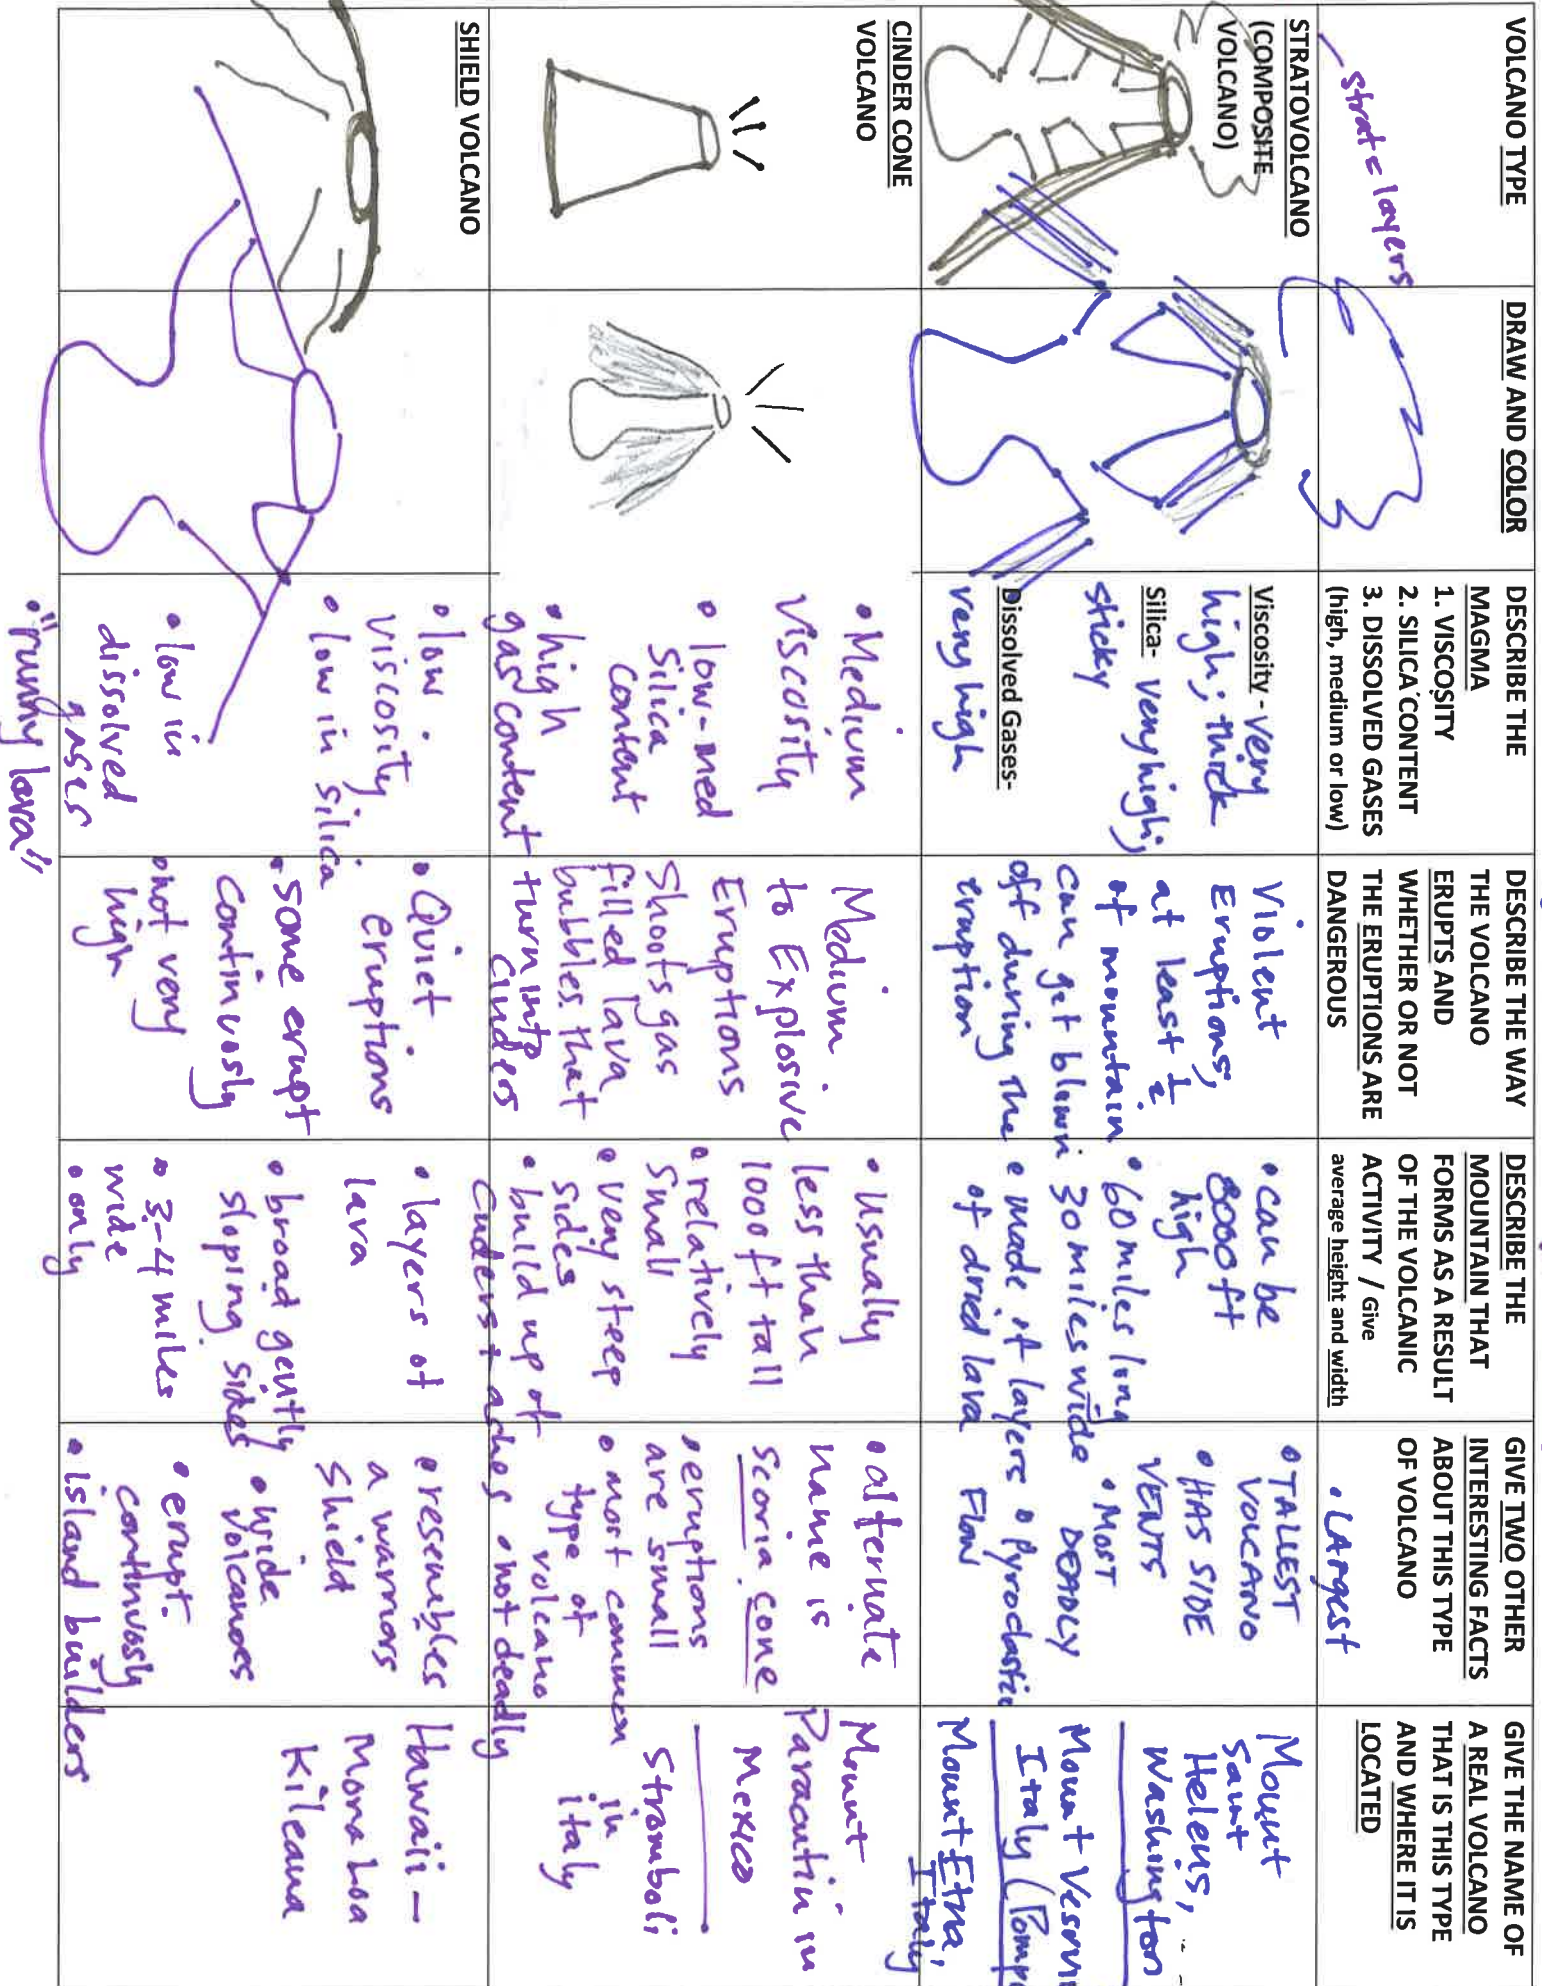 VOLCANO TYPE
strat = layers
DRAW AND COLOR
DESCRIBE THE
MAGMA
1. VISCOSITY
2. SILICA CONTENT
3. DISSOLVED GASES
(high, medium or low)
DESCRIBE THE WAY
THE VOLCANO
ERUPTS AND
WHETHER OR NOT
THE ERUPTIONS ARE
DANGEROUS
DESCRIBE THE
MOUNTAIN THAT
FORMS AS A RESULT
OF THE VOLCANIC
ACTIVITY / Give
average height and width
GIVE TWO OTHER
INTERESTING FACTS
ABOUT THIS TYPE
OF VOLCANO
• Largest
GIVE THE NAME OF
A REAL VOLCANO
THAT IS THIS TYPE
AND WHERE IT IS
LOCATED
STRATOVOLCANO
(COMPOSITE
VOLCANO)
Viscosity - very
high; thick
Silica - very high;
sticky
Dissolved Gases-
very high
Violent
Eruptions;
at least 1/2
of mountain
can get blown
off during the
eruption
• can be
8000 ft
high
• 60 miles long
30 miles wide
• made of layers
of dried lava
• TALLEST
VOLCANO
• HAS SIDE
VENTS
• MOST
DEADLY
• Pyroclastic
Flow
Mount
Saint
Helens,
Washington
Mount
Italy
Mount Etna,
Italy
CINDER CONE
VOLCANO
• Medium
Viscosity
• low-med
Silica
content
• high
gas content
Medium
to Explosive
Eruptions
Shoots gas
filled lava
bubbles that
turn into
cinders
• Usually
less than
1000 ft tall
• relatively
small
• very steep
sides
• build up of
cinders + ashes
• alternate
name is
scoria cone
• eruptions
are small
• most common
type of
volcano
• not deadly
Mount
Paracutin in
Mexico
Stromboli
in
italy
SHIELD VOLCANO
• low
viscosity
• low in silica
• low in
dissolved
gases
• "runny lava"
• Quiet
eruptions
• some erupt
continuosly
• not very
high
• layers of
lava
• broad gently
sloping sides
• 3-4 miles
wide
• only
• resembles
a warriors
shield
• wide
volcanoes
• erupt
continuosly
• island builders
Hawaii –
Mona Loa
Kileaua